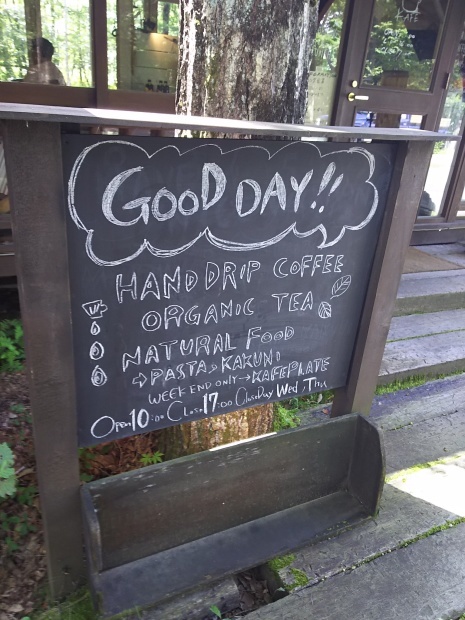 GOOD DAY!!
HANDDRIP COFFEE
ORGANIC TEA
NATURAL FOOD
→PASTA,KAKUNI
WEEKEND ONLY→KAFEPLATE
Open10:00 Close17:00 CloseDay Wed,Thu
KAFE